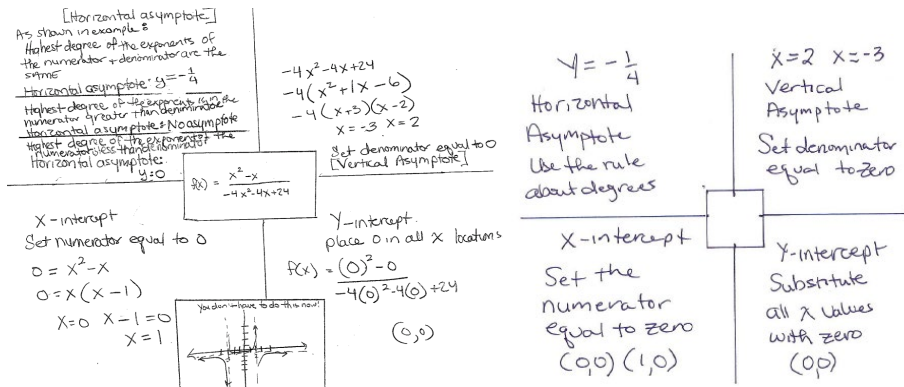 [Horizontal asymptote]
As shown in example:
Highest degree of the exponents of
the numerator + denominator are the
same
Horizontal asymptote: y=-1/4
Highest degree of the exponent is in the
numerator greater than deniminator
Horizontal asymptote: No asymptote
Highest degree of the exponent of the
numerator less than denominator
Horizontal asymptote:
y=0
-4x²-4x+24
-4(x²+1x-6)
-4(x+3)(x-2)
x=-3 x=2
Set denominator equal to 0
[Vertical Asymptote]
f(x) = x²-x
-4x²-4x+24
X-intercept
Set numerator equal to 0
0=x²-x
0=x(x-1)
x=0 x-1=0
x=1
Y-intercept
place 0 in all x locations
f(x) = (0)²-0
-4(0)²-4(0)+24
(0,0)
you don't have to do this now!
y=-1/4
Horizontal
Asymptote
Use the rule
about degrees
x=2 x=-3
Vertical
Asymptote
Set denominator
equal to zero
X-intercept
Set the
numerator
equal to zero
(0,0) (1,0)
Y-intercept
Substitute
all x values
with zero
(0,0)